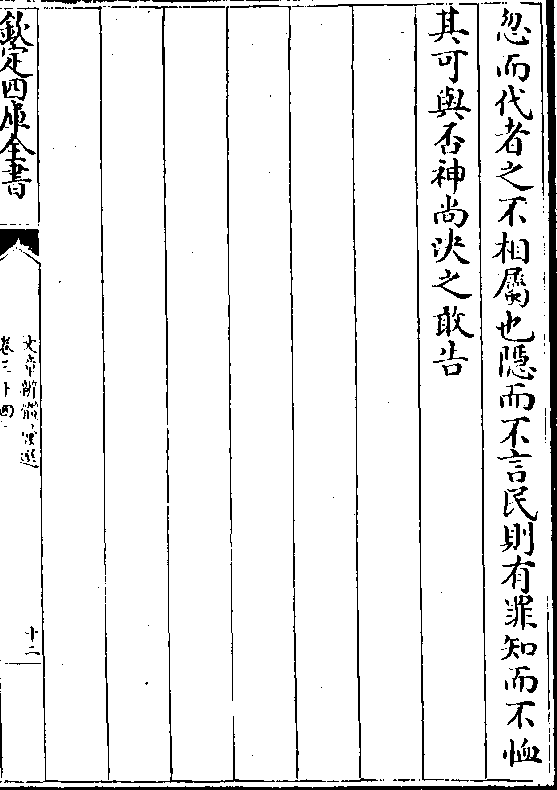 忽而代者之不相屬也隠而不言民則有罪知而不恤
其可與否神尚决之敢告
欽定四庫全書
文章辨體彚選
卷三十四
十二